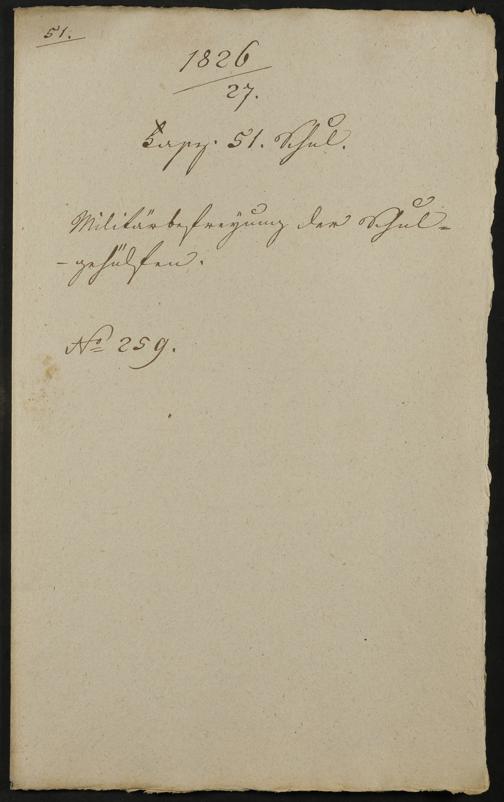 51.
1826
27.
51. Schul.
Militärbefreyung der Schul=
-gehülfen.
No 259.